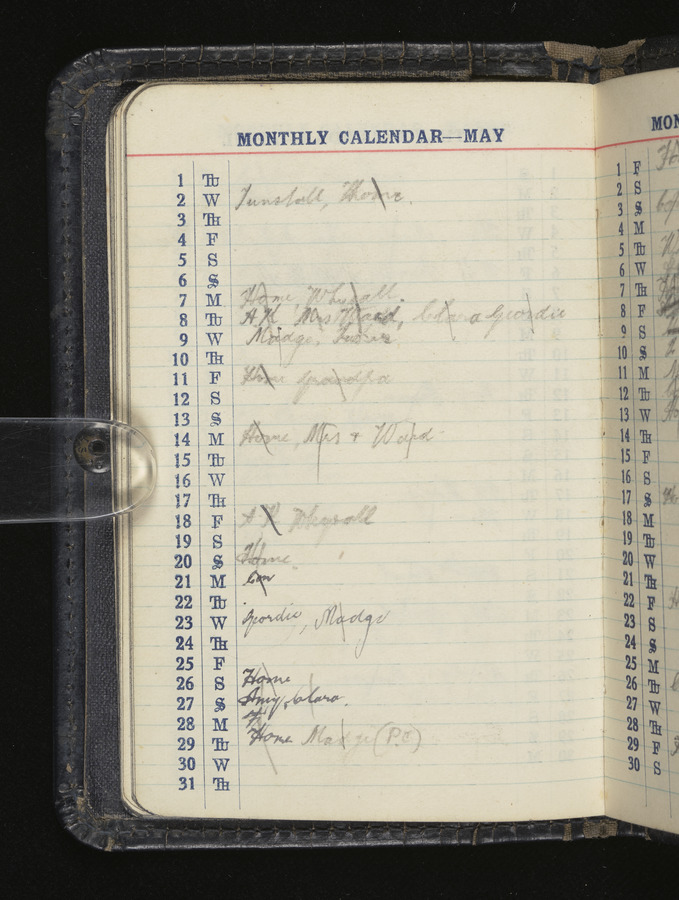 MONTHLY CALENDAR—MAY
1 Tu
2 W Tunstall, Home.
3 Th
4 F
5 S
6 S
7 M Home,
8 Tu A.K. Mrs Ward, Clara Geordie
9 W Madge,
10 Th
11 F Home Grandpa
12 S
13 S
14 M Home, Mrs + Ward
15 Tu
16 W
17 Th
18 F A K
19 S
20 S Home.
21 M
22 Tu
23 W Geordie, Madge
24 Th
25 F
26 S Home
27 S Amy, Clara.
28 M
29 Tu Home Madge (P.C)
30 W
31 Th
MON
1 F
2 S
3 S
4 M
5 Tu
6 W
7 Th
8 F
9 S
10 S
11 M
12 Tu
13 W
14 Th
15 F
16 S
17 S
18 M
19 Tu
20 W
21 Th
22 F
23 S
24 S
25 M
26 Tu
27 W
28 Th
29 F
30 S